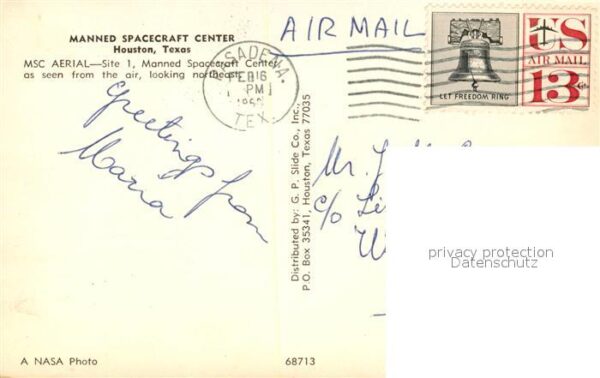 MANNED SPACECRAFT CENTER
Houston, Texas
MSC AERIAL—Site 1, Manned Spacecraft Center
as seen from the air, looking northeast
AIR MAIL
PASADENA,
FEB 16
PM
TEX.
LET FREEDOM RING
US
AIR MAIL
13c
Greetings from
Maria
Distributed by: G. P. Slide Co., Inc.,
P.O. Box 35341, Houston, Texas 77035
Mr.
c/o
privacy protection
Datenschutz
A NASA Photo
68713